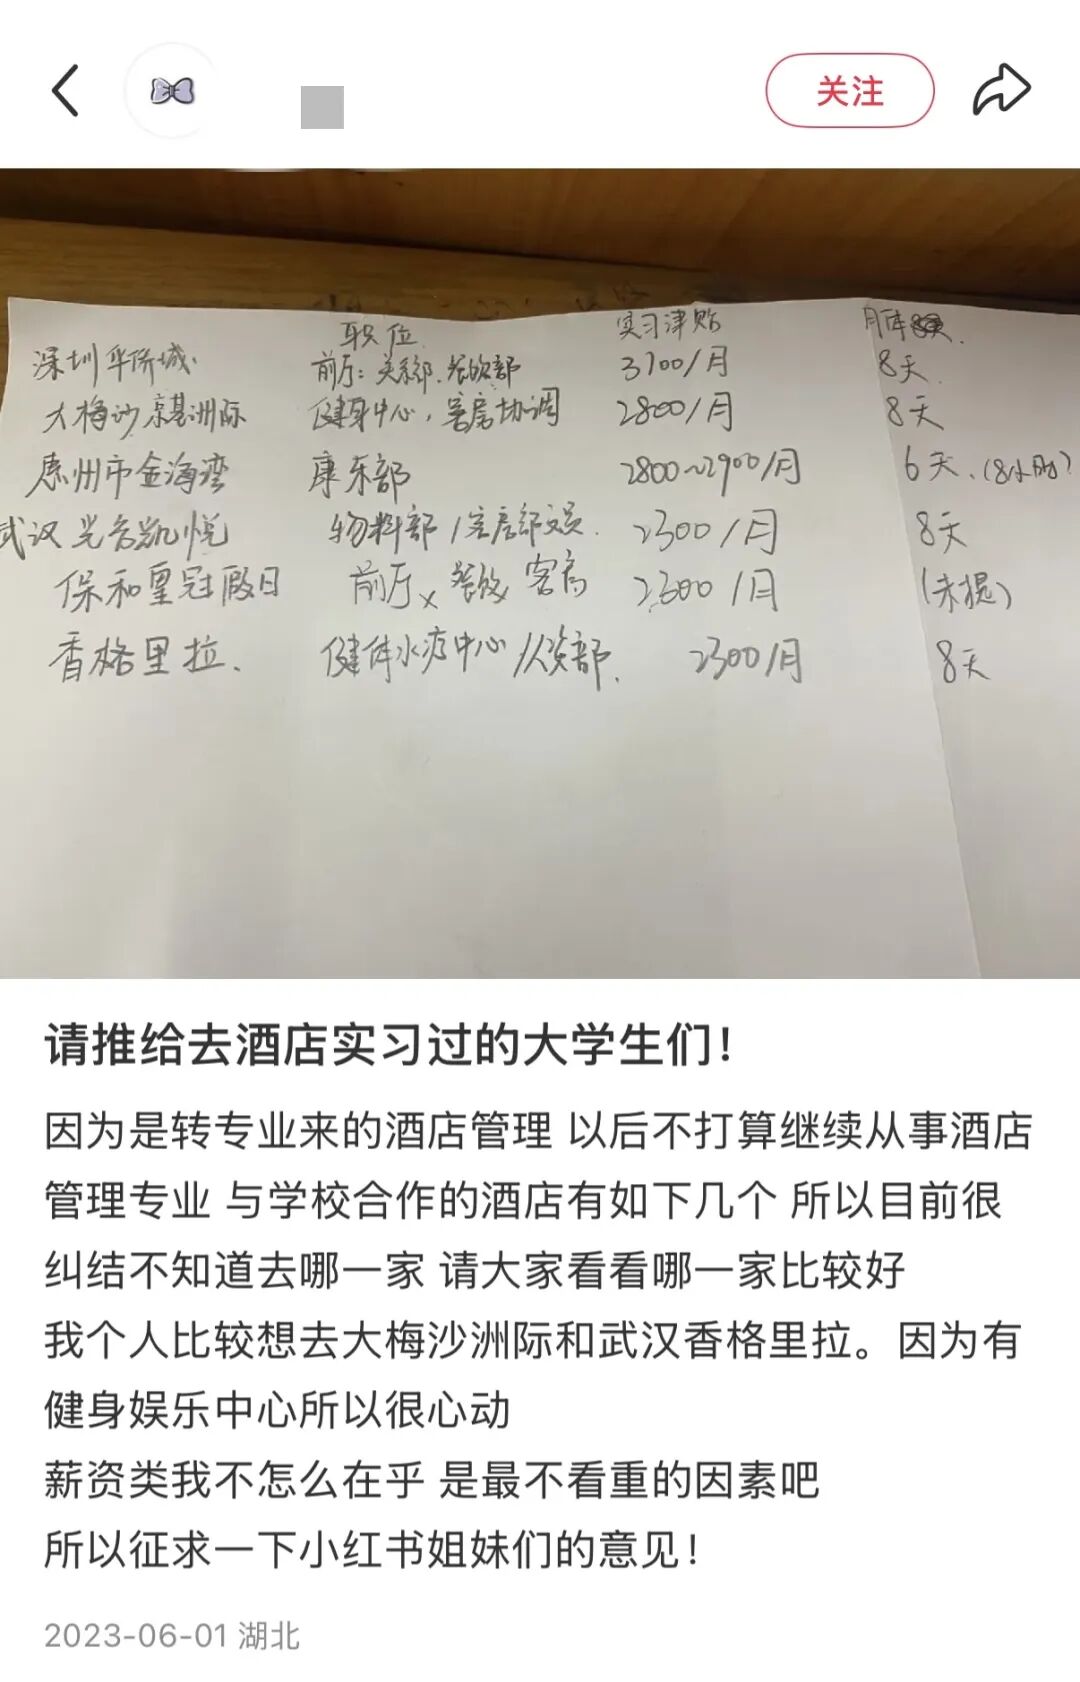 关注
职位 实习津贴 月休
深圳华侨城. 前厅: 关系部. 餐饮部 3100/月 8天.
大梅沙京基洲际 健身中心, 客房协调 2800/月 8天
惠州市金海湾 康乐部 2800~2900/月 6天. (8小时)
武汉光谷凯悦 物料部 / 客房部文员. 2300/月 8天
保和皇冠假日 前厅x 餐饮 客房 2300/月 (未提)
香格里拉. 健体水疗中心 / 人资部. 2300/月 8天
请推给去酒店实习过的大学生们！
因为是转专业来的酒店管理 以后不打算继续从事酒店
管理专业 与学校合作的酒店有如下几个 所以目前很
纠结不知道去哪一家 请大家看看哪一家比较好
我个人比较想去大梅沙洲际和武汉香格里拉。因为有
健身娱乐中心所以很心动
薪资类我不怎么在乎 是最不看重的因素吧
所以征求一下小红书姐妹们的意见！
2023-06-01 湖北